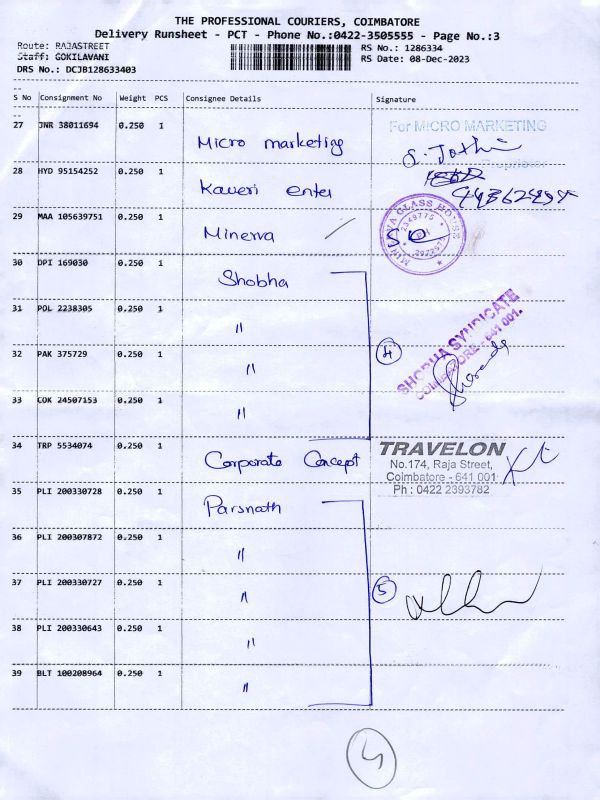 THE PROFESSIONAL COURIERS, COIMBATORE
Delivery Runsheet - PCT - Phone No.:0422-3505555 - Page No.:3
Route: RAJASTREET
Staff: GOKILAVANI
DRS No.: DCJB128633403
RS No.: 1286334
RS Date: 08-Dec-2023
S No Consignment No Weight PCS Consignee Details Signature
27 JNR 38011694 0.250 1 Micro marketing For MICRO MARKETING
S. Jothi
28 HYD 95154252 0.250 1 Kaveri enter
29 MAA 105639751 0.250 1 Minerva
MINERVA GLASS HOUSE
30 DPI 169030 0.250 1 Shobha
31 POL 2238305 0.250 1 "
32 PAK 375729 0.250 1 " 4
SHOBHA SYNDICATE
COIMBATORE - 641 001.
33 COK 24507153 0.250 1 "
34 TRP 5534074 0.250 1 Corporate Concept
TRAVELON
No.174, Raja Street,
Coimbatore - 641 001
Ph : 0422 2393782
35 PLI 200330728 0.250 1 Parsnath
36 PLI 200307872 0.250 1 "
37 PLI 200330727 0.250 1 " 5
38 PLI 200330643 0.250 1 "
39 BLT 100208964 0.250 1 "